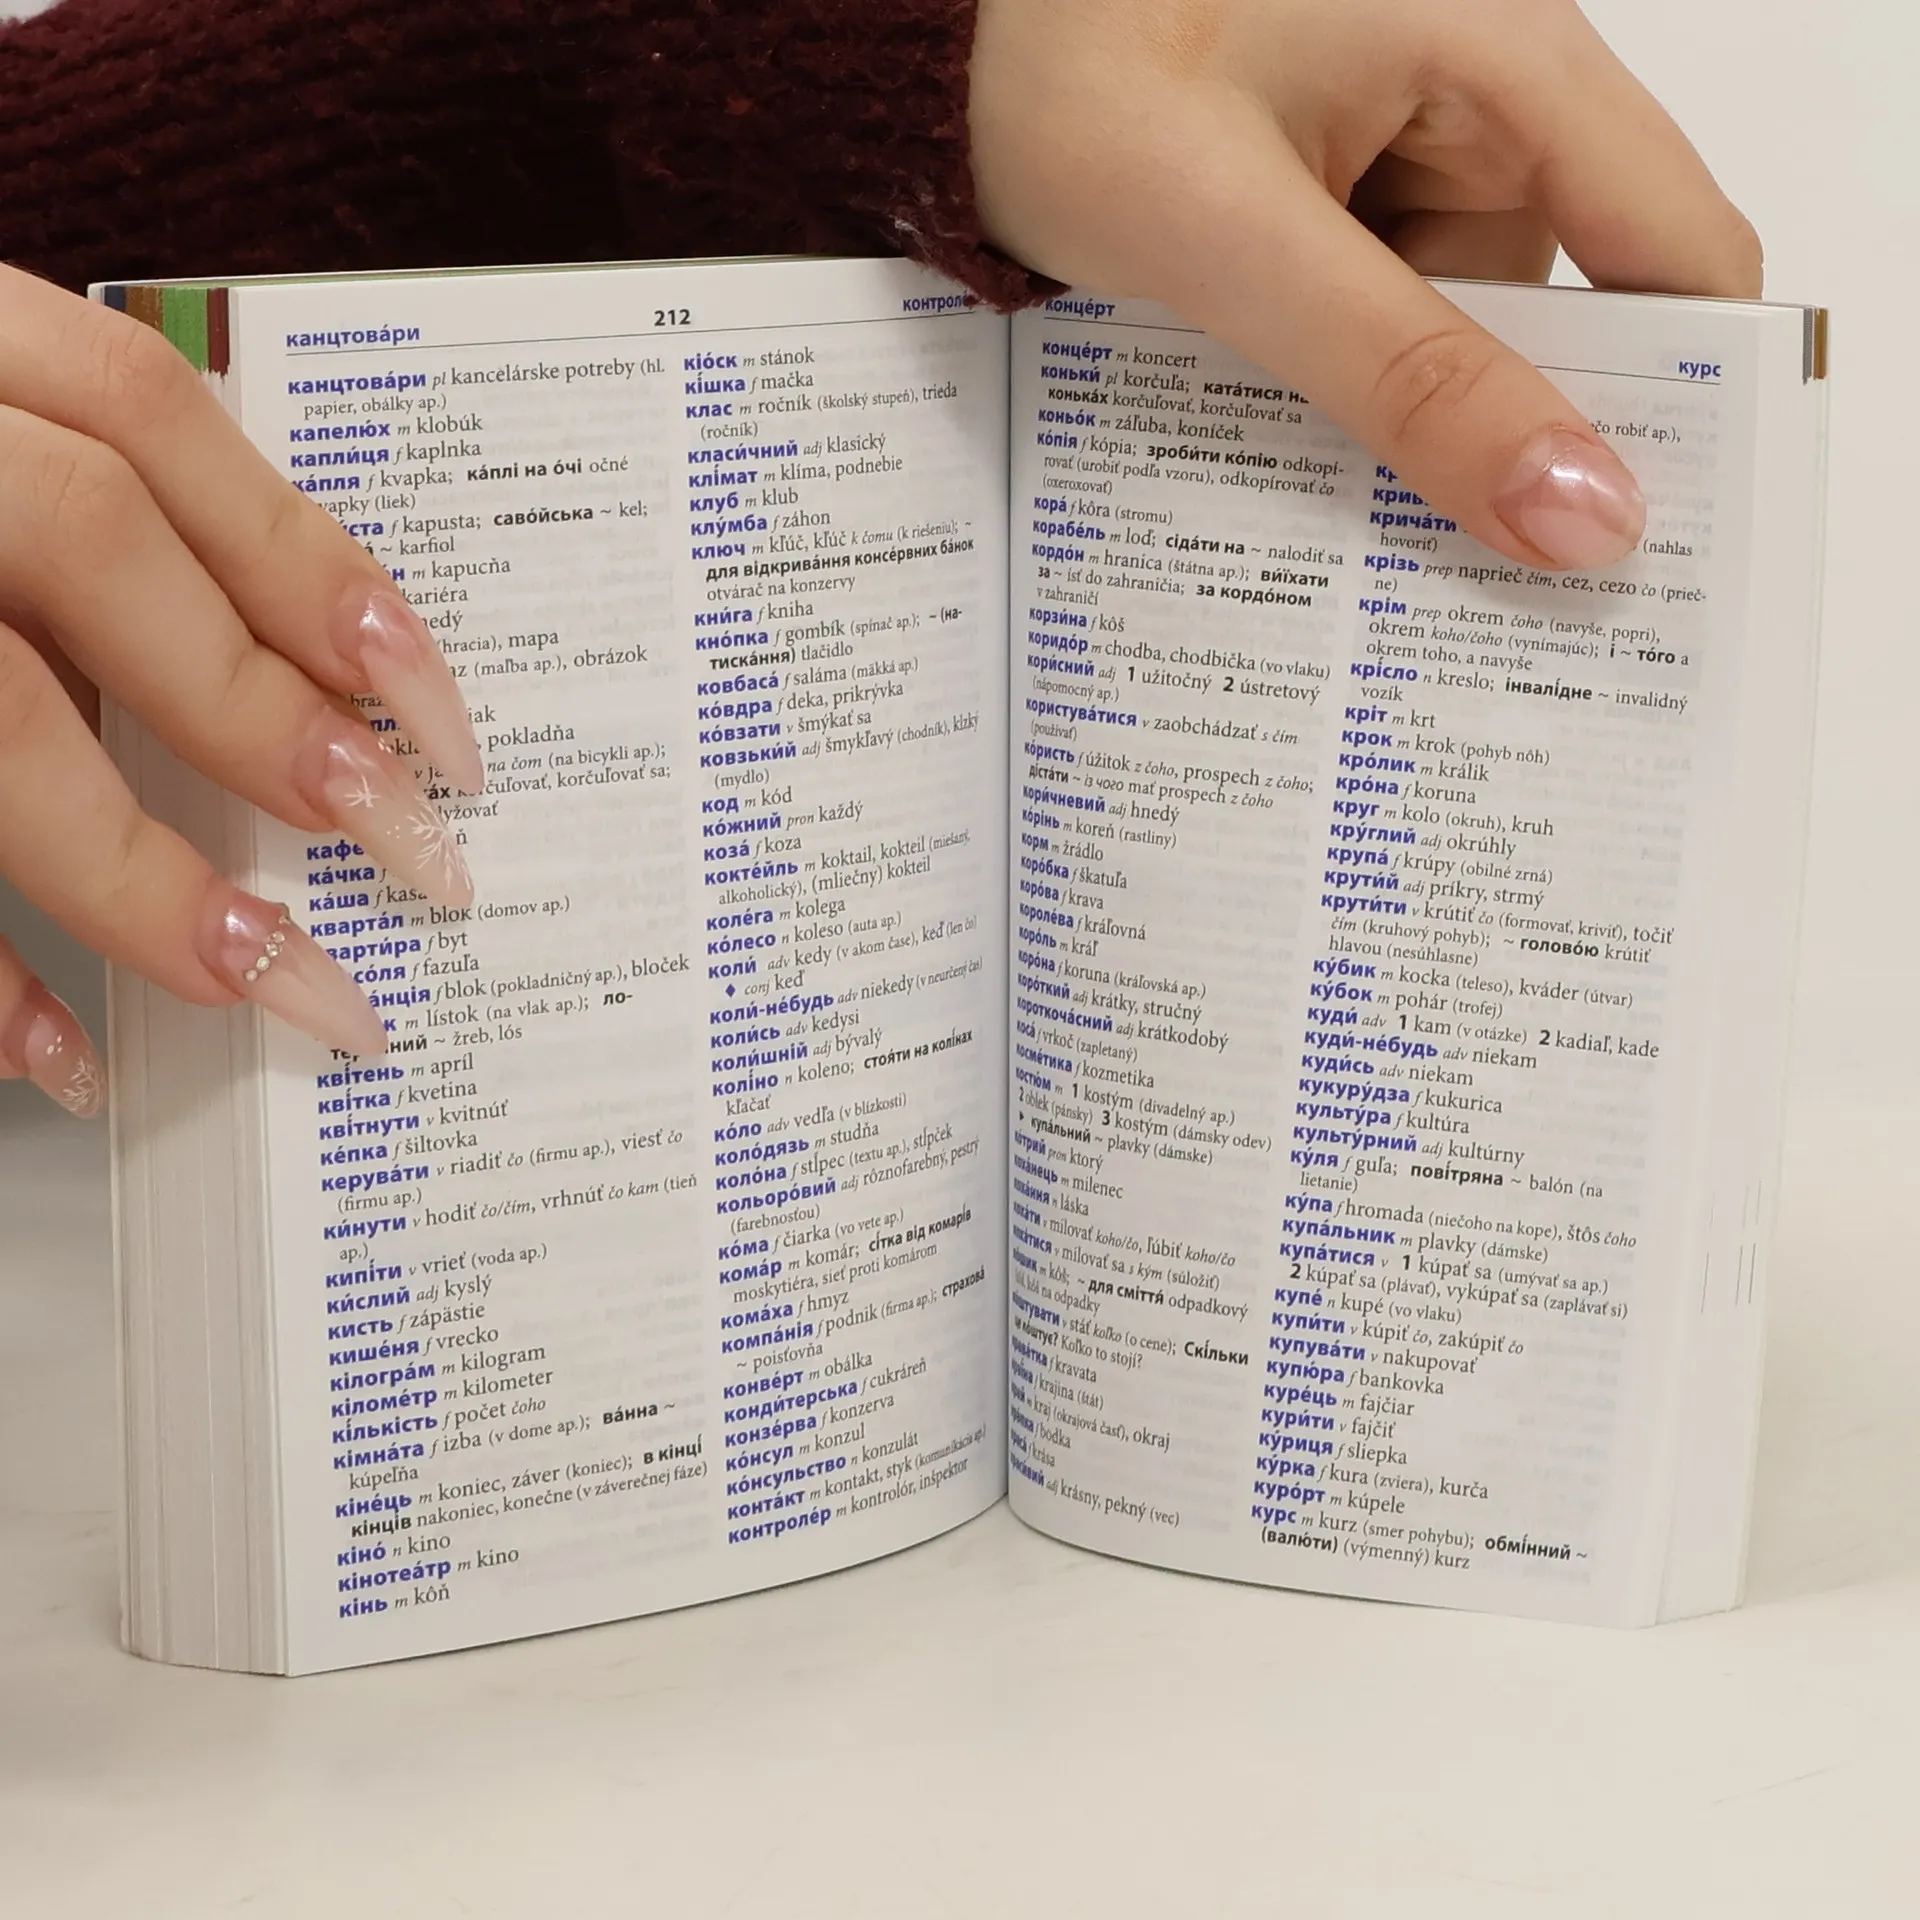 канцтова́ри
212
контроле́р
канцтова́ри pl kancelárske potreby (hl.
papier, obálky ap.)
капелю́х m klobúk
капли́ця f kaplnka
ка́пля f kvapka; ка́плі на о́чі očné
vapky (liek)
f kapusta; саво́йська ~ kel;
~ karfiol
m kapucňa
kariéra
(hracia), mapa
(maľba ap.), obrázok
pokladňa
na čom (na bicykli ap.);
korčuľovať sa;
ка́чка
ка́ша f
кварта́л m blok (domov ap.)
f byt
f fazuľa
f blok (pokladničný ap.), bloček
m lístok (na vlak ap.); ло-
~ žreb, lós
кві́тень m apríl
кві́тка f kvetina
кві́тнути v kvitnúť
ке́пка f šiltovka
керува́ти v riadiť čo (firmu ap.), viesť čo
(firmu ap.)
ки́нути v hodiť čo/čím, vrhnúť čo kam (tieň
ap.)
кипі́ти v vrieť (voda ap.)
ки́слий adj kyslý
кисть f zápästie
кише́ня f vrecko
кілогра́м m kilogram
кіломе́тр m kilometer
кі́лькість f počet čoho
кімна́та f izba (v dome ap.); ва́нна ~
kúpeľňa
кіне́ць m koniec, záver (koniec); в кінці́
кінці́в nakoniec, konečne (v záverečnej fáze)
кіно́ n kino
кінотеа́тр m kino
кінь m kôň
кіо́ск m stánok
кі́шка f mačka
клас m ročník (školský stupeň), trieda
(ročník)
класи́чний adj klasický
клі́мат m klíma, podnebie
клуб m klub
клу́мба f záhon
ключ m kľúč, kľúč k čomu (k riešeniu); ~
для відкрива́ння консе́рвних ба́нок
otvárač na konzervy
кни́га f kniha
кно́пка f gombík (spínač ap.); ~ (на-
тиска́ння) tlačidlo
ковбаса́ f saláma (mäkká ap.)
ко́вдра f deka, prikrývka
ко́взати v šmýkať sa
ковзьки́й adj šmykľavý (chodník), klzký
(mydlo)
код m kód
ко́жний pron každý
коза́ f koza
кокте́йль m koktail, kokteil (miešaný,
alkoholický), (mliečny) kokteil
коле́га m kolega
ко́лесо n koleso (auta ap.)
коли́ adv kedy (v akom čase), keď (len čo)
♦ conj keď
коли́-не́будь adv niekedy (v neurčený čas)
коли́сь adv kedysi
коли́шній adj bývalý
колі́но n koleno; стоя́ти на колі́нах
kľačať
ко́ло adv vedľa (v blízkosti)
коло́дязь m studňa
коло́на f stĺpec (textu ap.), stĺpček
кольоро́вий adj rôznofarebný, pestrý
(farebnosťou)
ко́ма f čiarka (vo vete ap.)
кома́р m komár; сі́тка від комарі́в
moskytiéra, sieť proti komárom
кома́ха f hmyz
компа́нія f podnik (firma ap.); страхова́
~ poisťovňa
конве́рт m obálka
конди́терська f cukráreň
консе́рва f konzerva
ко́нсул m konzul
ко́нсульство n konzulát
конта́кт m kontakt, styk (komunikácia ap.)
контроле́р m kontrolór, inšpektor
конце́рт
курс
конце́рт m koncert
коньки́ pl korčuľa; ката́тися
конька́х korčuľovať, korčuľovať sa
коньо́к m záľuba, koníček
ко́пія f kópia; зроби́ти ко́пію odkopí-
rovať (urobiť podľa vzoru), odkopírovať čo
(oxeroxovať)
кора́ f kôra (stromu)
корабе́ль m loď; сіда́ти на ~ nalodiť sa
кордо́н m hranica (štátna ap.); ви́їхати
за ~ ísť do zahraničia; за кордо́ном
v zahraničí
корзи́на f kôš
коридо́р m chodba, chodbička (vo vlaku)
кори́сний adj 1 užitočný 2 ústretový
(nápomocný ap.)
користува́тися v zaobchádzať s čím
(používať)
ко́ристь f úžitok z čoho, prospech z čoho;
діста́ти ~ із чого mať prospech z čoho
кори́чневий adj hnedý
ко́рінь m koreň (rastliny)
корм m žrádlo
коро́бка f škatuľa
коро́ва f krava
короле́ва f kráľovná
коро́ль m kráľ
коро́на f koruna (kráľovská ap.)
коро́ткий adj krátky, stručný
короткоча́сний adj krátkodobý
коса́ f vrkoč (zapletaný)
косме́тика f kozmetika
костю́м m 1 kostým (divadelný ap.)
2 oblek (pánsky) 3 kostým (dámsky odev)
▸ купа́льний ~ plavky (dámske)
ко́трий pron ktorý
коха́нець m milenec
коха́ння n láska
коха́ти v milovať koho/čo, ľúbiť koho/čo
коха́тися v milovať sa s kým (súložiť)
ко́шик m kôš; ~ для смі́ття odpadkový
kôš, kôš na odpadky
ко́штувати v stáť koľko (o cene); Скі́льки
це ко́штує? Koľko to stojí?
крава́тка f kravata
краї́на f krajina (štát)
край m kraj (okrajová časť), okraj
bodka
краса́ f krása
краси́вий adj krásny, pekný (vec)
robiť ap.),
крича́ти
(nahlas
hovoriť)
крізь prep naprieč čím, cez, cezo čo (prieč-
ne)
крім prep okrem čoho (navyše, popri),
okrem koho/čoho (vynímajúc); і ~ то́го a
okrem toho, a navyše
крі́сло n kreslo; інвалі́дне ~ invalidný
vozík
кріт m krt
крок m krok (pohyb nôh)
кро́лик m králik
кро́на f koruna
круг m kolo (okruh), kruh
кру́глий adj okrúhly
крупа́ f krúpy (obilné zrná)
крути́й adj príkry, strmý
крути́ти v krútiť čo (formovať, kriviť), točiť
čím (kruhový pohyb); ~ голово́ю krútiť
hlavou (nesúhlasne)
ку́бик m kocka (teleso), kváder (útvar)
ку́бок m pohár (trofej)
куди́ adv 1 kam (v otázke) 2 kadiaľ, kade
куди́-не́будь adv niekam
куди́сь adv niekam
кукуру́дза f kukurica
культу́ра f kultúra
культу́рний adj kultúrny
ку́ля f guľa; пові́тряна ~ balón (na
lietanie)
ку́па f hromada (niečoho na kope), štôs čoho
купа́льник m plavky (dámske)
купа́тися v 1 kúpať sa (umývať sa ap.)
2 kúpať sa (plávať), vykúpať sa (zaplávať si)
купе́ n kupé (vo vlaku)
купи́ти v kúpiť čo, zakúpiť čo
купува́ти v nakupovať
купю́ра f bankovka
куре́ць m fajčiar
кури́ти v fajčiť
ку́риця f sliepka
ку́рка f kura (zviera), kurča
куро́рт m kúpele
курс m kurz (smer pohybu); обмі́нний ~
(валю́ти) (výmenný) kurz